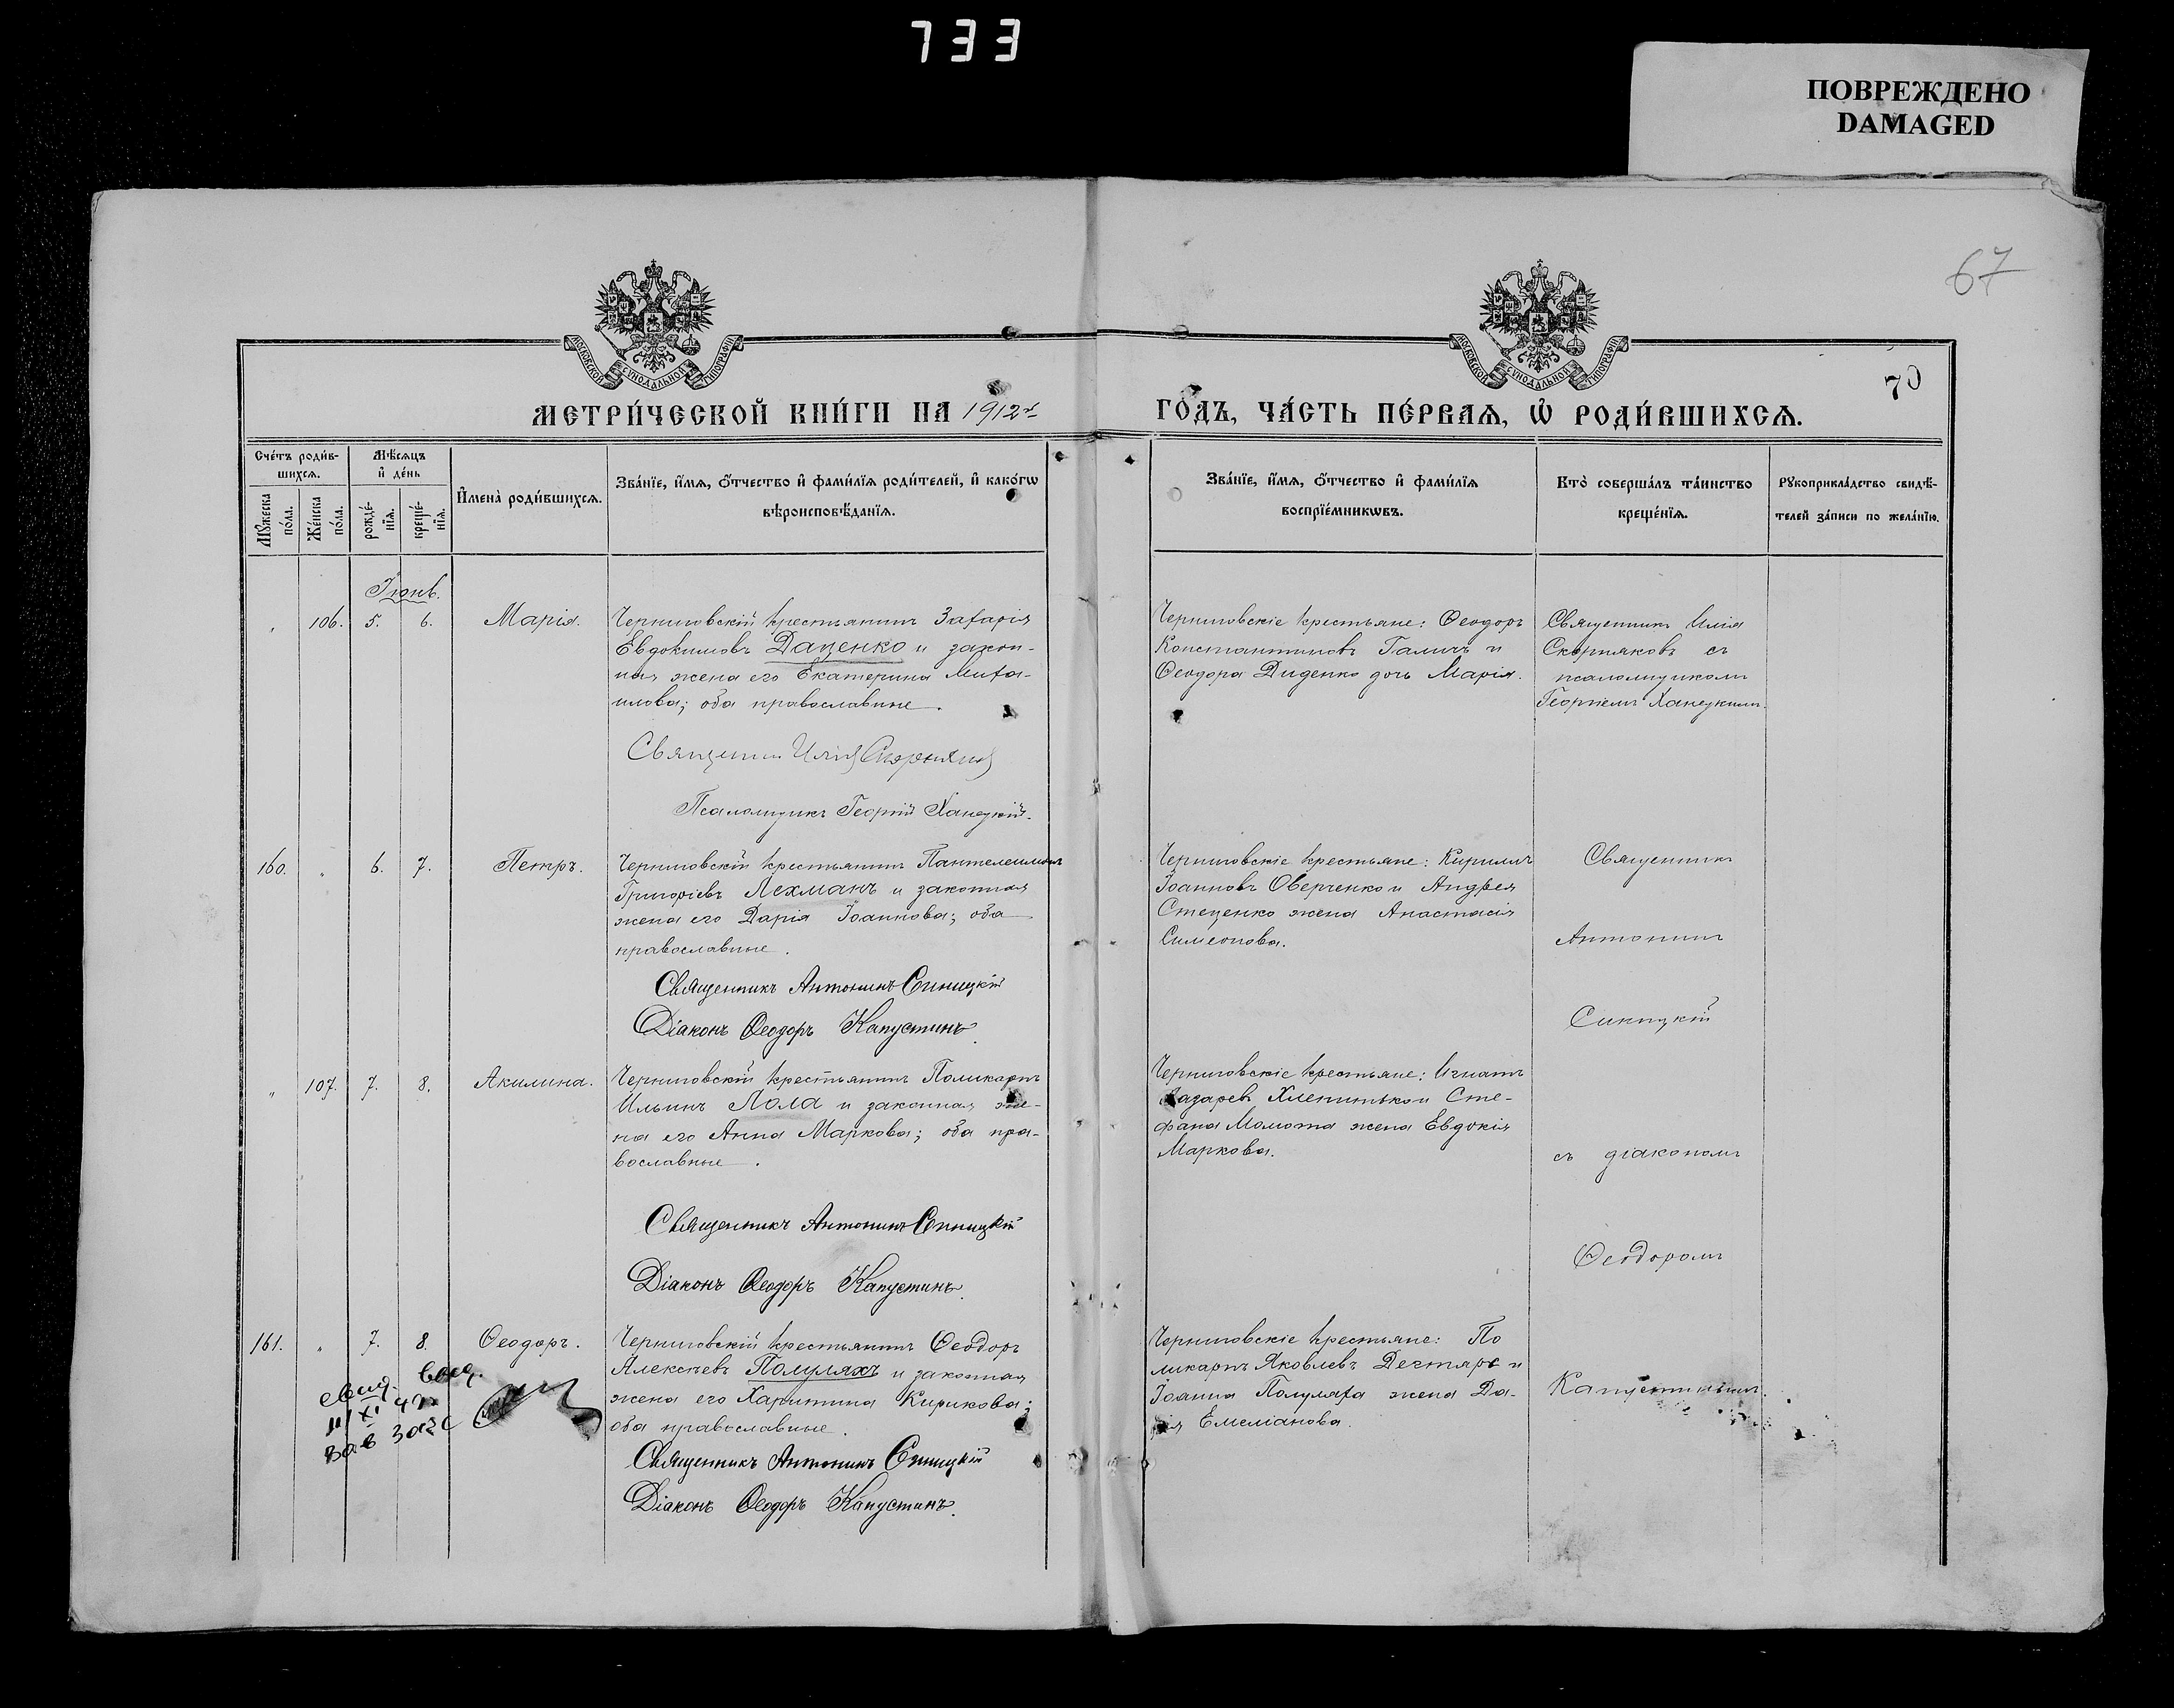 733
ПОВРЕЖДЕНО
DAMAGED
67
70
МОСКОВСКОЙ СУНОДАЛЬНОЙ ТИПОГРАФІИ
МОСКОВСКОЙ СУНОДАЛЬНОЙ ТИПОГРАФІИ
МЕТРИ́ЧЕСКОЙ КНИ́ГИ НА 1912 г.
ГО́ДЪ, ЧА́СТЬ ПЕ́РВАѦ, Ѡ҆ РОДИ́ВШИХСѦ.
Сче́тъ роди́в-
шихсѧ.
Мꙋжеска по́ла.
Же́нска по́ла.
Мѣ́сѧцъ
и҆ де́нь
рожде́-
нїѧ.
креще́-
нїѧ.
И҆мена̀ роди́вшихсѧ.
Зва́нїе, и҆́мѧ, ѻ҆́тчество и҆ фами́лїѧ роди́телей, и҆ како́гѡ
вѣроисповѣ́данїѧ.
Зва́нїе, и҆́мѧ, ѻ҆́тчество и҆ фами́лїѧ
воспрїе́мникѡвъ.
Кто̀ соверша́лъ та́инство
креще́нїѧ.
Рꙋкоприкла́дство свидѣ́-
телей за́писи по жела́нїю.
Іюнь.
„ 106. 5. 6. Марія.
Черниговскій крестьянинъ Захарія
Евдокимовъ Даценко и закон-
ная жена его Екатерина Миха-
илова; оба православные.
Священникъ Илія Скорняковъ
Псаломщикъ Георгій Ханецкій.
Черниговскіе крестьяне: Ѳеодоръ
Константиновъ Галичъ и
Ѳеодора Диденко дочь Марія.
Священникъ Илія
Скорняковъ съ
псаломщикомъ
Георгіемъ Ханецкимъ.
160. „ 6. 7. Петръ.
Черниговскій крестьянинъ Пантелеимонъ
Григоріевъ Лехманъ и законная
жена его Дарія Іоаннова; оба
православные.
Священникъ Антонинъ Синицкій
Діаконъ Ѳеодоръ Капустинъ.
Черниговскіе крестьяне: Кириллъ
Іоанновъ Оверченко и Андрея
Стеценко жена Анастасія
Симеонова.
Священникъ
Антонинъ
Синицкій
„ 107. 7. 8. Акилина.
Черниговскій крестьянинъ Поликарпъ
Ильинъ Лола и законная же-
на его Анна Маркова; оба пра-
вославные.
Священникъ Антонинъ Синицкій
Діаконъ Ѳеодоръ Капустинъ.
Черниговскіе крестьяне: Игнатъ
Лазаревъ Хленитько и Сте-
фана Момота жена Евдокія
Маркова.
съ діакономъ
Ѳеодоромъ
161. „ 7. 8. Ѳеодоръ.
Черниговскій крестьянинъ Ѳеодоръ
Алексѣевъ Полуляхъ и законная
жена его Харитина Кирикова;
оба православные.
Священникъ Антонинъ Синицкій
Діаконъ Ѳеодоръ Капустинъ.
Черниговскіе крестьяне: По
ликарпъ Яковлевъ Дегтярь и
Іоанна Полуляха жена Да-
рія Емеліанова.
Капустинымъ.